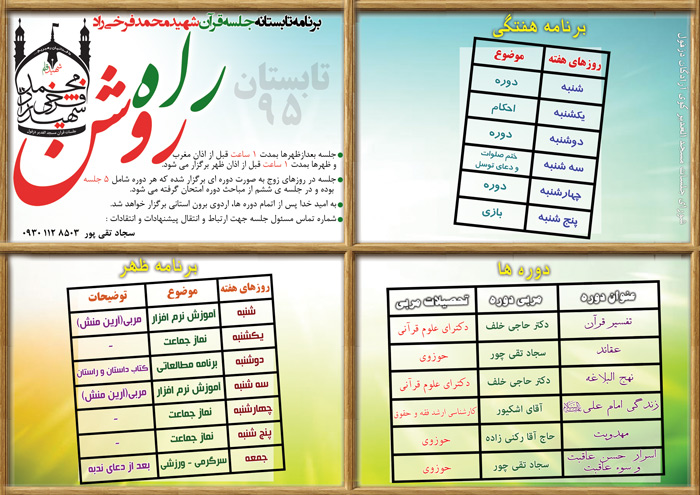 برنامه تابستانه جلسه قرآن شهید محمد فرخی راد
شهید محمد فرخی راد
جلسات قرآن مسجد الغدیر دزفول
راه روشن
تابستان ۹۵
جلسه بعدازظهرها بمدت ۱ ساعت قبل از اذان مغرب
و ظهرها بمدت ۱ ساعت قبل از اذان ظهر برگزار می شود.
جلسه در روزهای زوج به صورت دوره ای برگزار شده که هر دوره شامل ۵ جلسه
بوده و در جلسه ی ششم از مباحث دوره امتحان گرفته می شود.
به امید خدا پس از اتمام دوره ها، اردوی برون استانی برگزار خواهد شد.
شماره تماس مسئول جلسه جهت ارتباط و انتقال پیشنهادات و انتقادات :
سجاد تقی پور ۰۹۳۰ ۱۱۲ ۸۵۰۳
برنامه هفتگی
روزهای هفته موضوع
شنبه دوره
یکشنبه احکام
دوشنبه دوره
سه شنبه ختم صلوات
و دعای توسل
چهارشنبه دوره
پنج شنبه بازی
مسجد الغدیر کوی آزادگان دزفول
برنامه ظهر
روزهای هفته موضوع توضیحات
شنبه آموزش نرم افزار مربی(آرین منش)
یکشنبه نماز جماعت -
دوشنبه برنامه مطالعاتی کتاب داستان و راستان
سه شنبه آموزش نرم افزار مربی(آرین منش)
چهارشنبه نماز جماعت -
پنج شنبه نماز جماعت -
جمعه سرگرمی - ورزشی بعد از دعای ندبه
دوره ها
عنوان دوره مربی دوره تحصیلات مربی
تفسیر قرآن دکتر حاجی خلف دکترای علوم قرآنی
عقائد سجاد تقی پور حوزوی
نهج البلاغه دکتر حاجی خلف دکترای علوم قرآنی
زندگی امام علی آقای اشکبور کارشناسی ارشد فقه و حقوق
مهدویت حاج آقا رکنی زاده حوزوی
اسرار حسن عاقبت
و سوء عاقبت سجاد تقی پور حوزوی